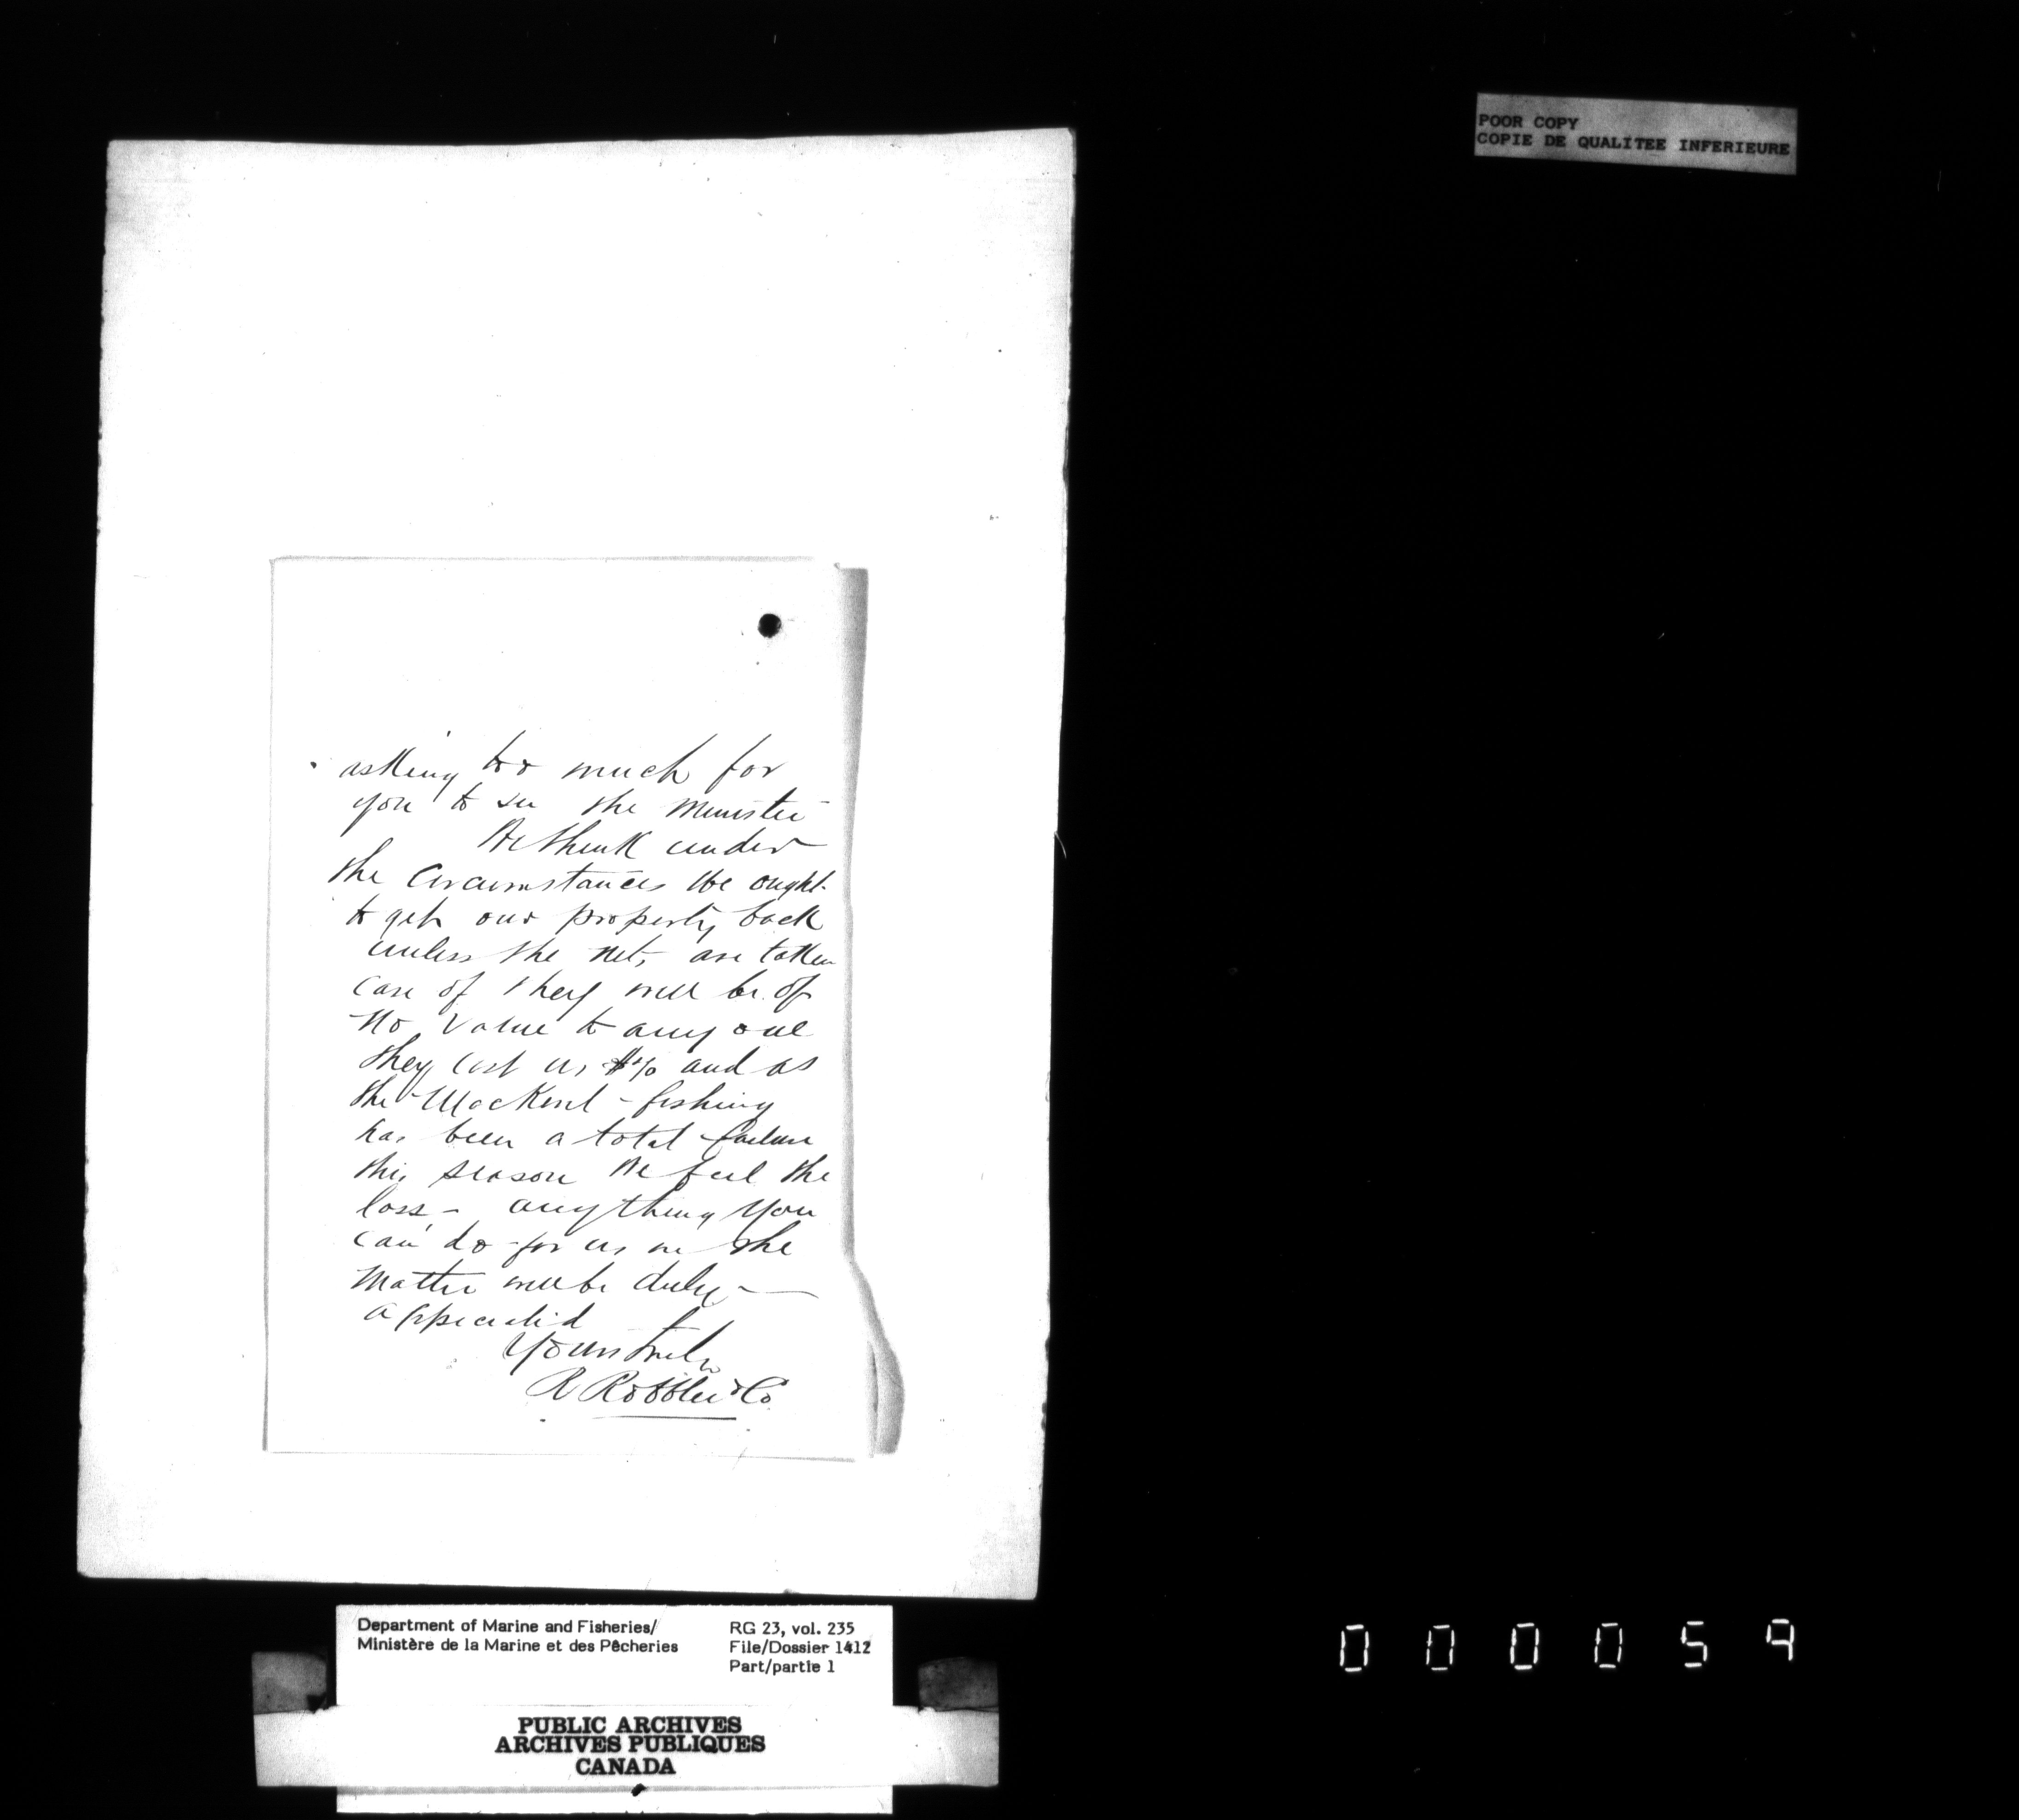 POOR COPY
COPIE DE QUALITEE INFERIEURE
asking too much for
you to see the Minister
We think under
the circumstances we ought
to get our property back
unless the nets are taken
care of they will be of
no value to any one
they cost us and as
the Mackerel fishing
has been a total failure
this season We feel the
loss - anything you
can do for us in the
matter will be duly -
appreciated
Yours truly
R & Co
Department of Marine and Fisheries/
Ministère de la Marine et des Pêcheries
RG 23, vol. 235
File/Dossier 1412
Part/partie 1
PUBLIC ARCHIVES
ARCHIVES PUBLIQUES
CANADA
000059